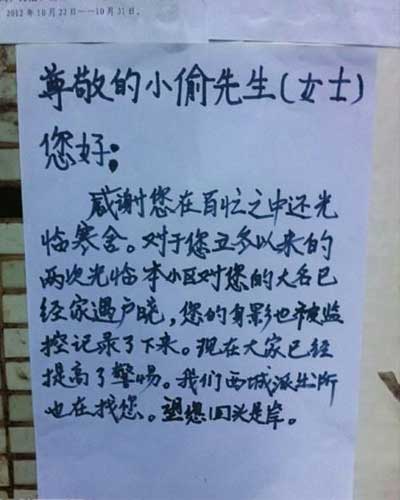 2012年10月22日——10月31日。
尊敬的小偷先生(女士)
您好:
感谢您在百忙之中还光
临寒舍。对于您以来的
两次光临本小区对您的大名已
经家遇户晓,您的身影也被监
控记录了下来。现在大家已经
提高了警惕。我们西城派出所
也在找您。望您回头是岸。